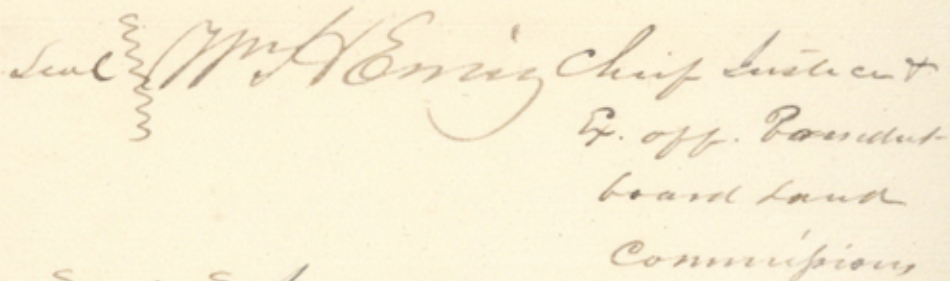 Seal Wm H Ewing Chief Justice &
Ex. off. President
board Land
Commissioners